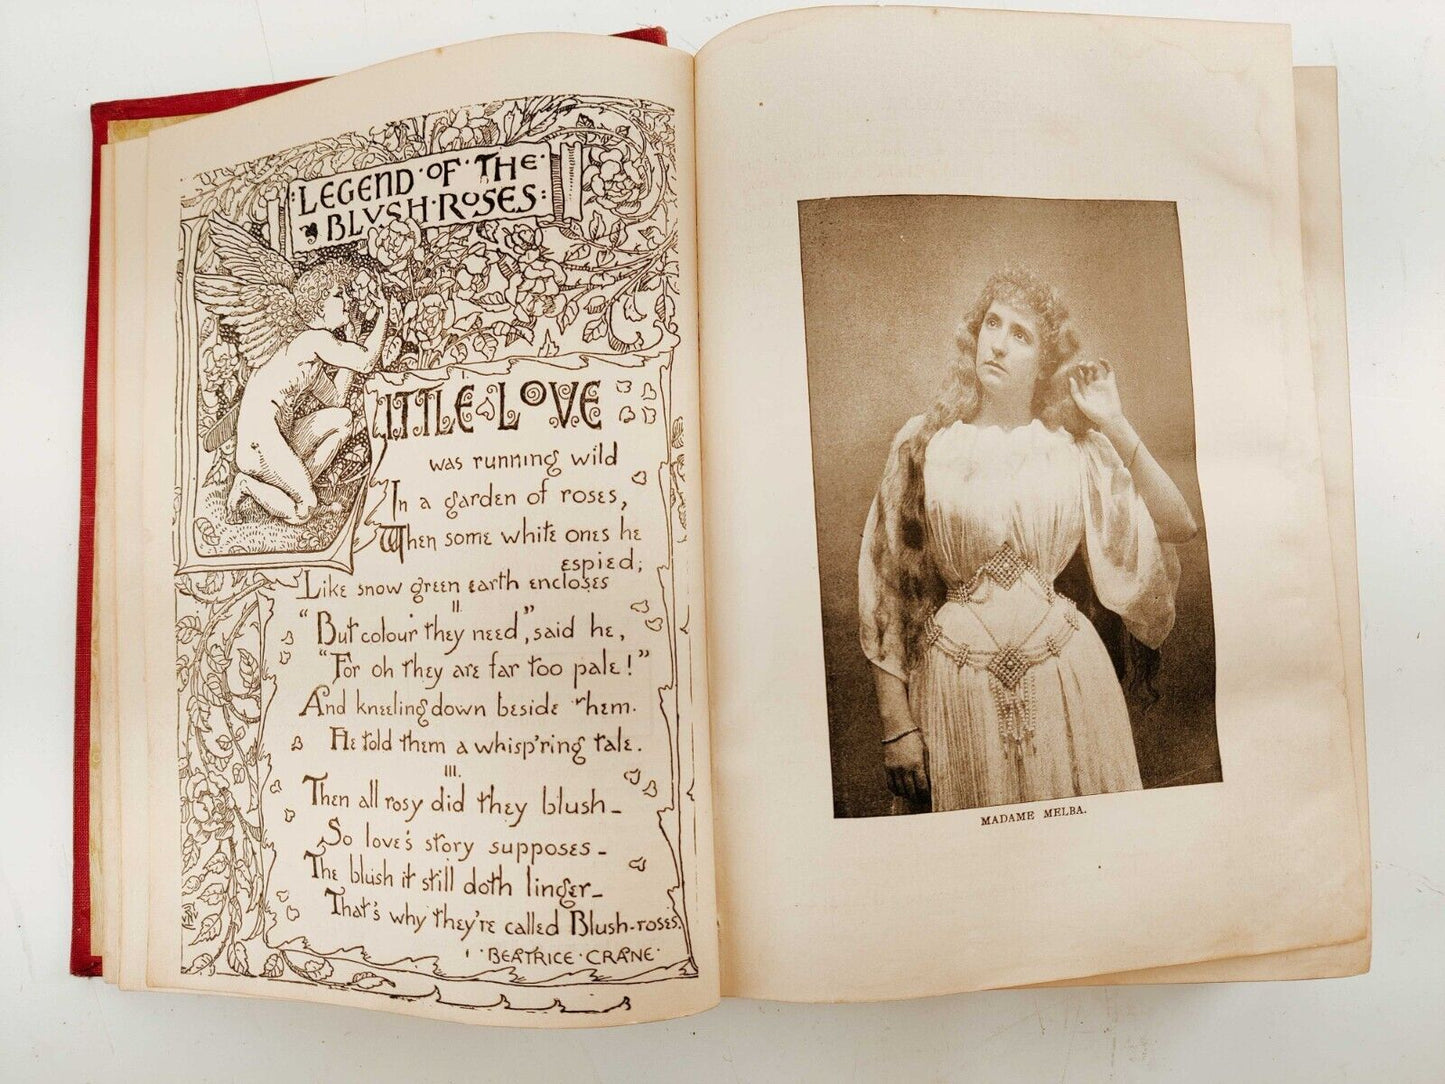 LEGEND·OF·THE·
BLUSH·ROSES:
LITTLE LOVE
was running wild
In a garden of roses,
When some white ones he
espied;
Like snow green earth encloses
II.
"But colour they need", said he,
"For oh they are far too pale!"
And kneeling down beside them.
He told them a whisp'ring tale.
III.
Then all rosy did they blush_
So love's story supposes_
The blush it still doth linger_
That's why they're called Blush-roses.
·BEATRICE·CRANE·
MADAME MELBA.